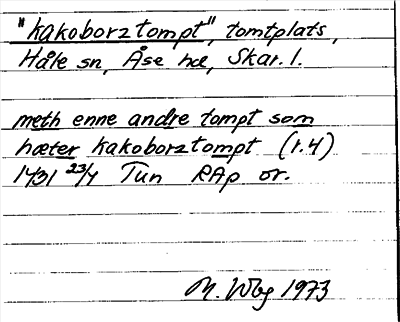 "kakoborztompt", tomtplats,
Håle sn, Åse hd, Skar. l.
meth enne andre tompt som
hæter kakoborztompt (r.4)
1431 23/4 Tun RAp or.
M. Wbg 1973